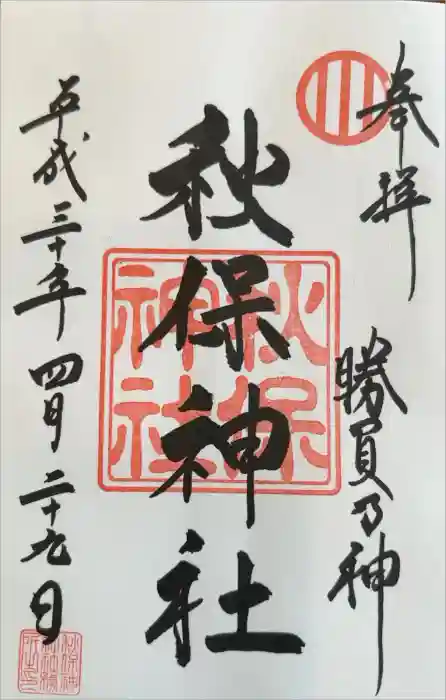 奉拝
勝負乃神
秋保神社
秋保
神社
平成三十年四月二十九日
秋保神
社社務
所之印